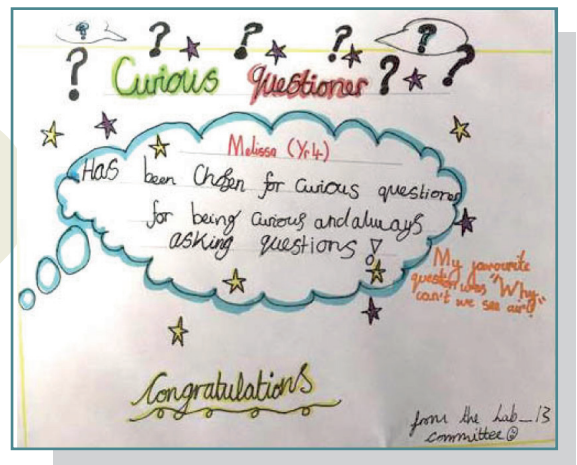 ? ? ? ? ?
? Curious Questioner ? ?
Melissa (Yr4)
Has been Chosen for curious questioner
for being curious and always
asking questions!
My favourite
question was "Why
can't we see air?"
Congratulations
from the Lab_13
committee